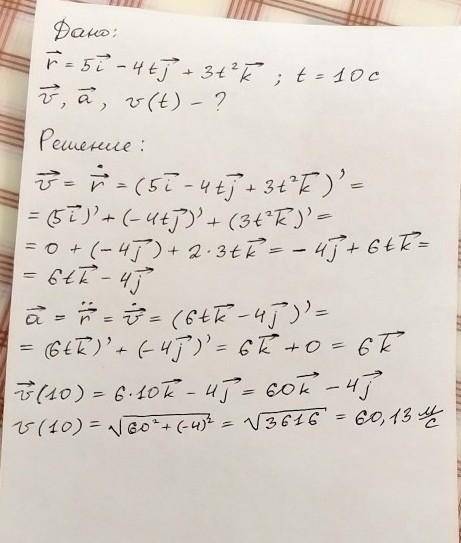 Дано:
r⃗ = 5i⃗ − 4tj⃗ + 3t²k⃗ ; t = 10 с
v⃗, a⃗, v(t) − ?
Решение:
v⃗ = ṙ⃗ = (5i⃗ − 4tj⃗ + 3t²k⃗)' =
= (5i⃗)' + (−4tj⃗)' + (3t²k⃗)' =
= 0 + (−4j⃗) + 2·3tk⃗ = −4j⃗ + 6tk⃗ =
= 6tk⃗ − 4j⃗
a⃗ = r̈⃗ = v̇⃗ = (6tk⃗ − 4j⃗)' =
= (6tk⃗)' + (−4j⃗)' = 6k⃗ + 0 = 6k⃗
v⃗(10) = 6·10k⃗ − 4j⃗ = 60k⃗ − 4j⃗
v(10) = √(60² + (−4)²) = √3616 = 60,13 м/с